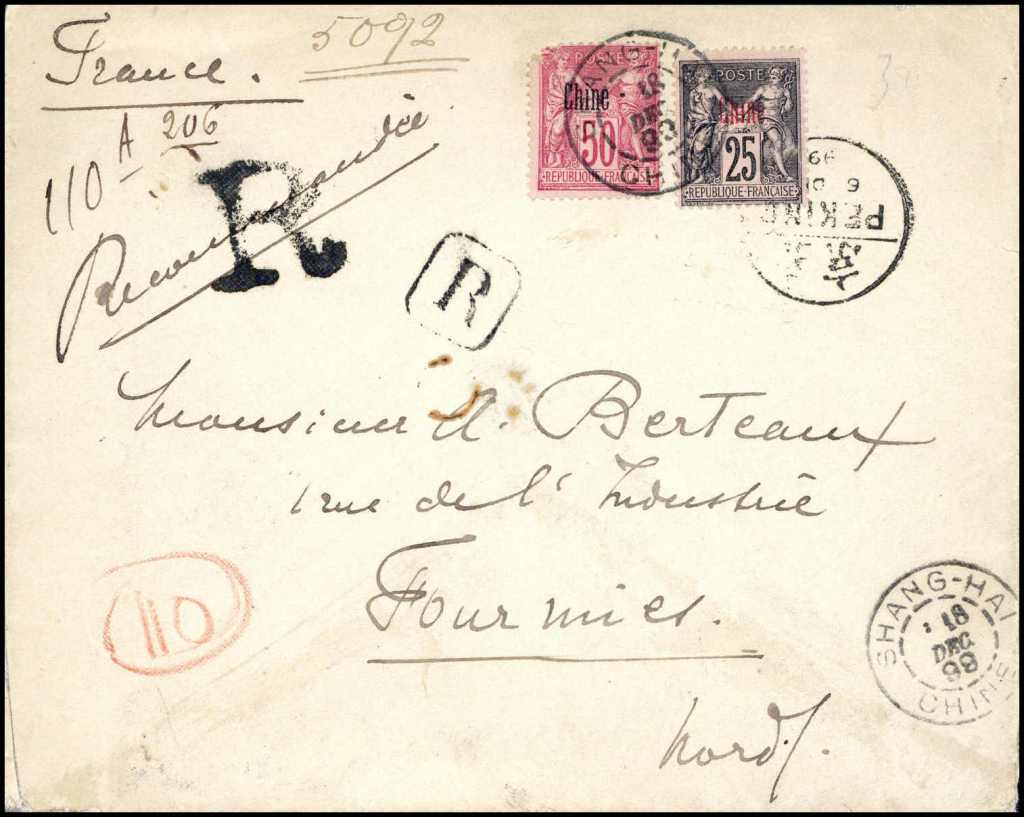 France.
5092
A 206
110
Recommandée
R
R
POSTE
Chine
50
REPUBLIQUE FRANCAISE
POSTE
Chine
25
REPUBLIQUE FRANÇAISE
18
DEC
99
6
PEKING
Monsieur A. Berteaux
rue de l'Industrie
Fournies.
Nord.
110
SHANG-HAI
18
DEC
99
CHINE